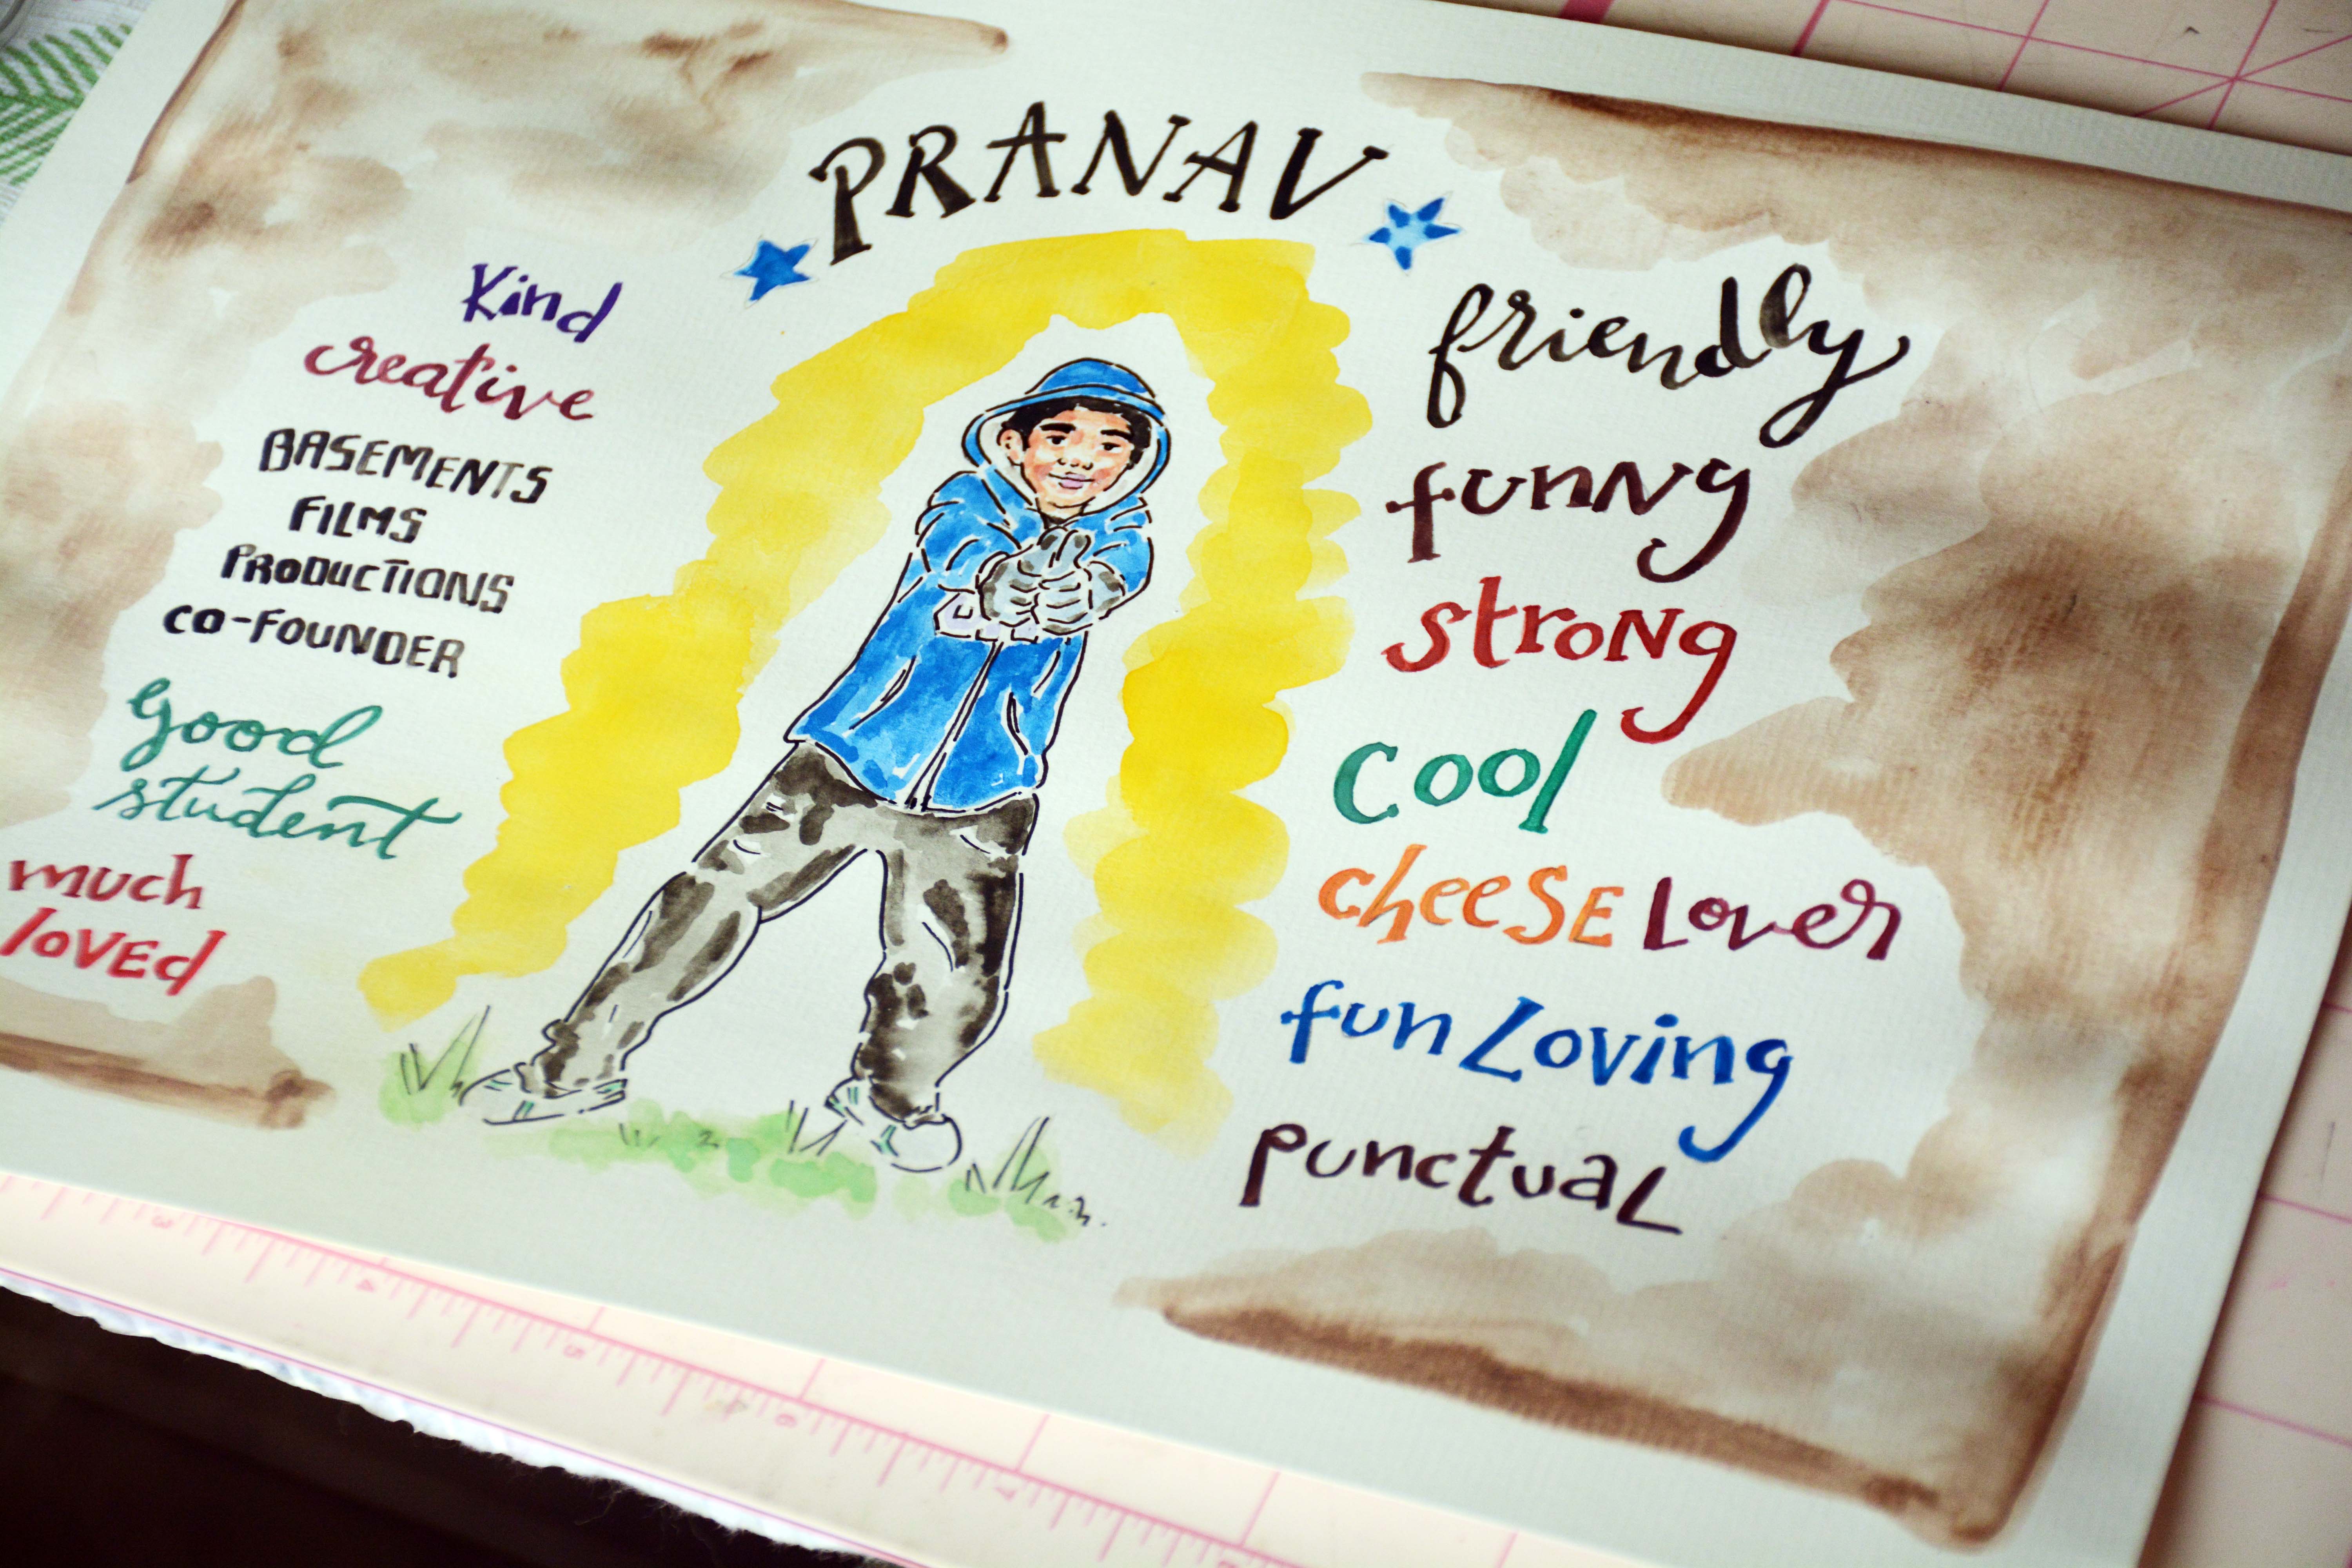 PRANAV
Kind
creative
BASEMENTS
FILMS
PRODUCTIONS
CO-FOUNDER
good
student
much
loved
friendly
funny
strong
cool
cheese Lover
fun Loving
punctual
3
4
5
6
7